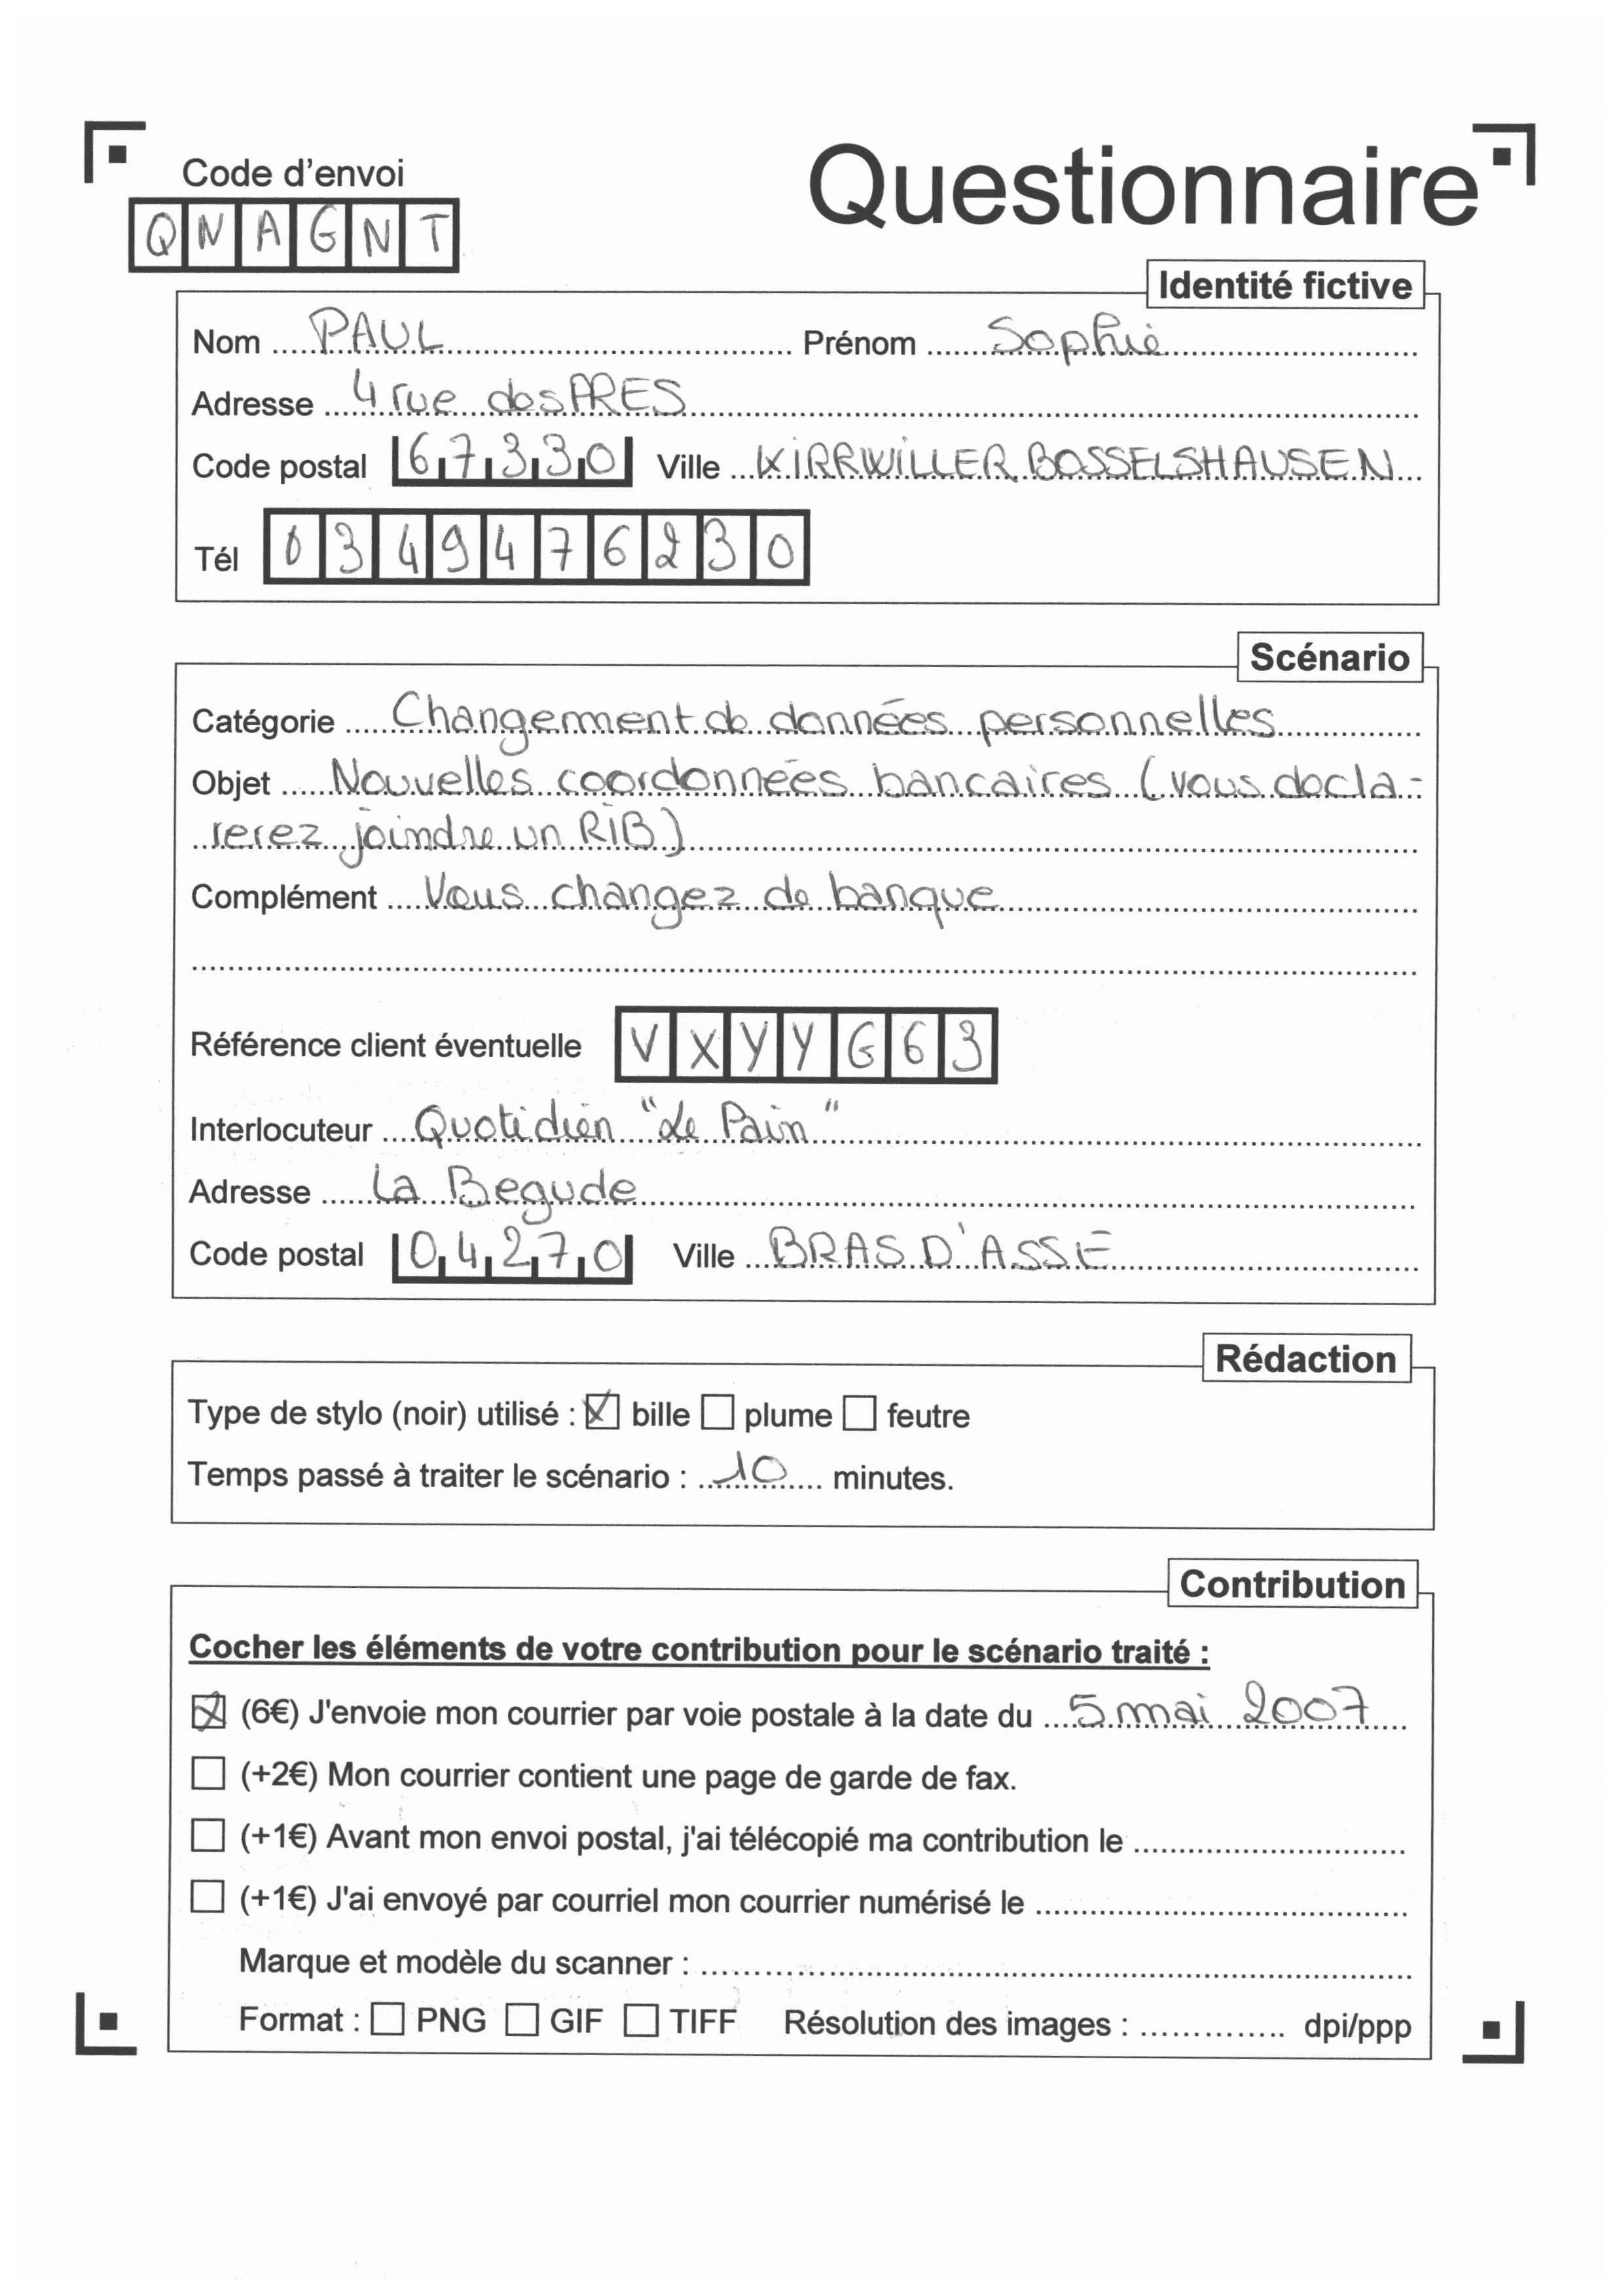 Code d'envoi
Questionnaire
QNAGNT
Identité fictive
Nom PAUL Prénom Sophie
Adresse 4 rue des PRES
Code postal 67330 Ville KIRRWILLER BOSSELSHAUSEN
Tél 0349476230
Scénario
Catégorie Changement de données personnelles
Objet Nouvelles coordonnées bancaires (vous decla-
rerez joindre un RIB)
Complément Vous changez de banque
Référence client éventuelle VXYYG63
Interlocuteur Quotidien "Le Pain"
Adresse La Begude
Code postal 04270 Ville BRAS D'ASSE
Rédaction
Type de stylo (noir) utilisé : bille plume feutre
Temps passé à traiter le scénario : 10 minutes.
Contribution
Cocher les éléments de votre contribution pour le scénario traité :
(6€) J'envoie mon courrier par voie postale à la date du 5 mai 2007
(+2€) Mon courrier contient une page de garde de fax.
(+1€) Avant mon envoi postal, j'ai télécopié ma contribution le
(+1€) J'ai envoyé par courriel mon courrier numérisé le
Marque et modèle du scanner :
Format : PNG GIF TIFF Résolution des images : dpi/ppp